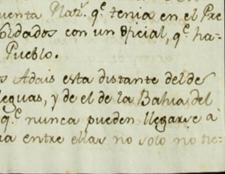 uenta Naz.ˢ q.ᵉ tenia en el Pre
oldados con un Oficial, q.ᵉ ha-
Pueblo.
s Adais esta distante del de
leguas, y de el de la Bahia del
q.ᵉ nunca pueden llegarse à
ia entre ellas no solo no tie-